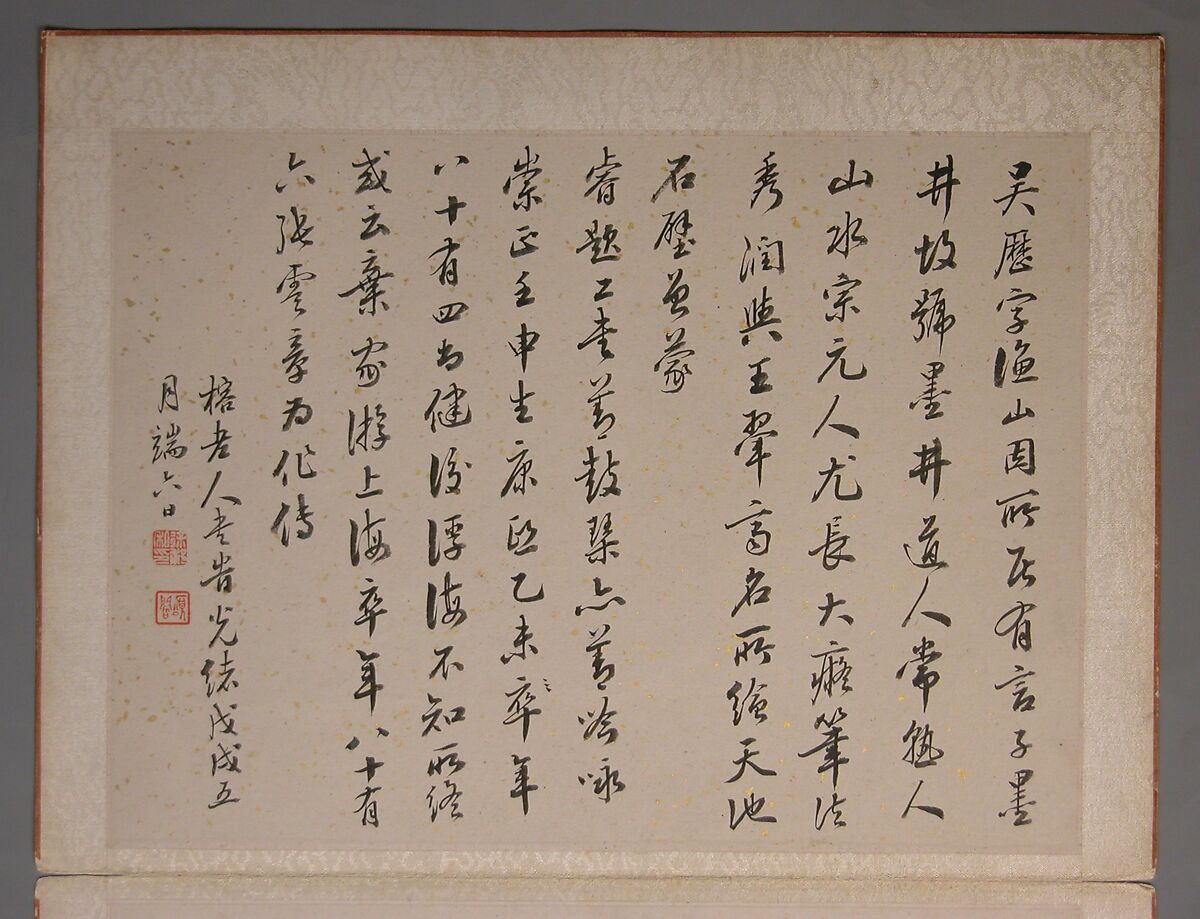 吳歷字漁山因所居有言子墨
井故號墨井道人常熟人
山水宗元人尤長大癡筆法
秀潤與王翬齊名所繪天地
石壁曾蒙
睿題工書善鼓琴亦善吟咏
崇正壬申生康熙乙未卒年
八十有四尚健後浮海不知所終
或云棄家游上海卒年八十有
六張雲章為作傳
榕老人書 光緒戊戌五
月端六日